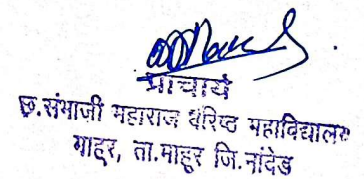 प्राचार्य
छ.संभाजी महाराज वरिष्ठ महाविद्यालय
माहूर, ता.माहूर जि.नांदेड